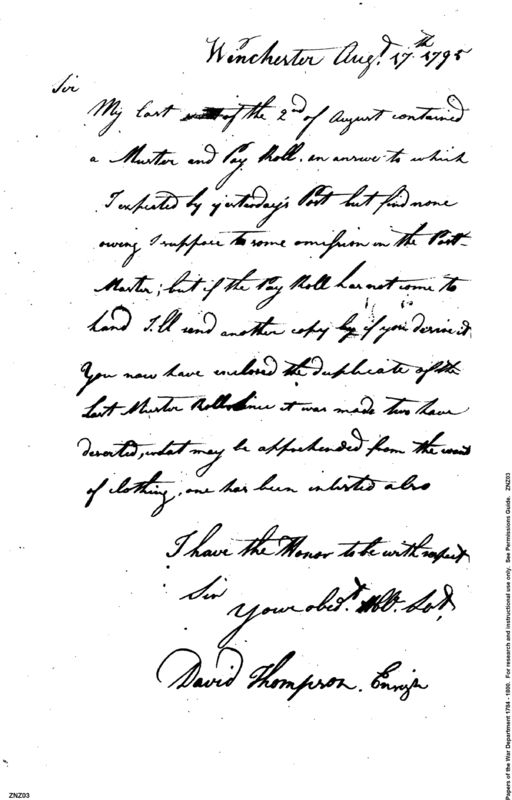 Winchester Augt. 17th 1795
Sir
My last of the 2nd of August contained
a Muster and Pay Roll. an answer to which
I expected by yesterday's Post but find none
owing I suppose to some omission in the Post-
Master; but if the Pay Roll has not come to
hand I'll send another copy by if you desire it
You now have enclosed the duplicate of the
Last Muster Roll Since it was made two have
deserted, what may be apprehended from the want
of clothing, one has been inlisted also
I have the Honor to be with respect
Sir
Your obedt. Hble. Svt,
David Thompson. Ensign
ZNZ03
Papers of the War Department 1784 - 1800. For research and instructional use only. See Permissions Guide. ZNZ03